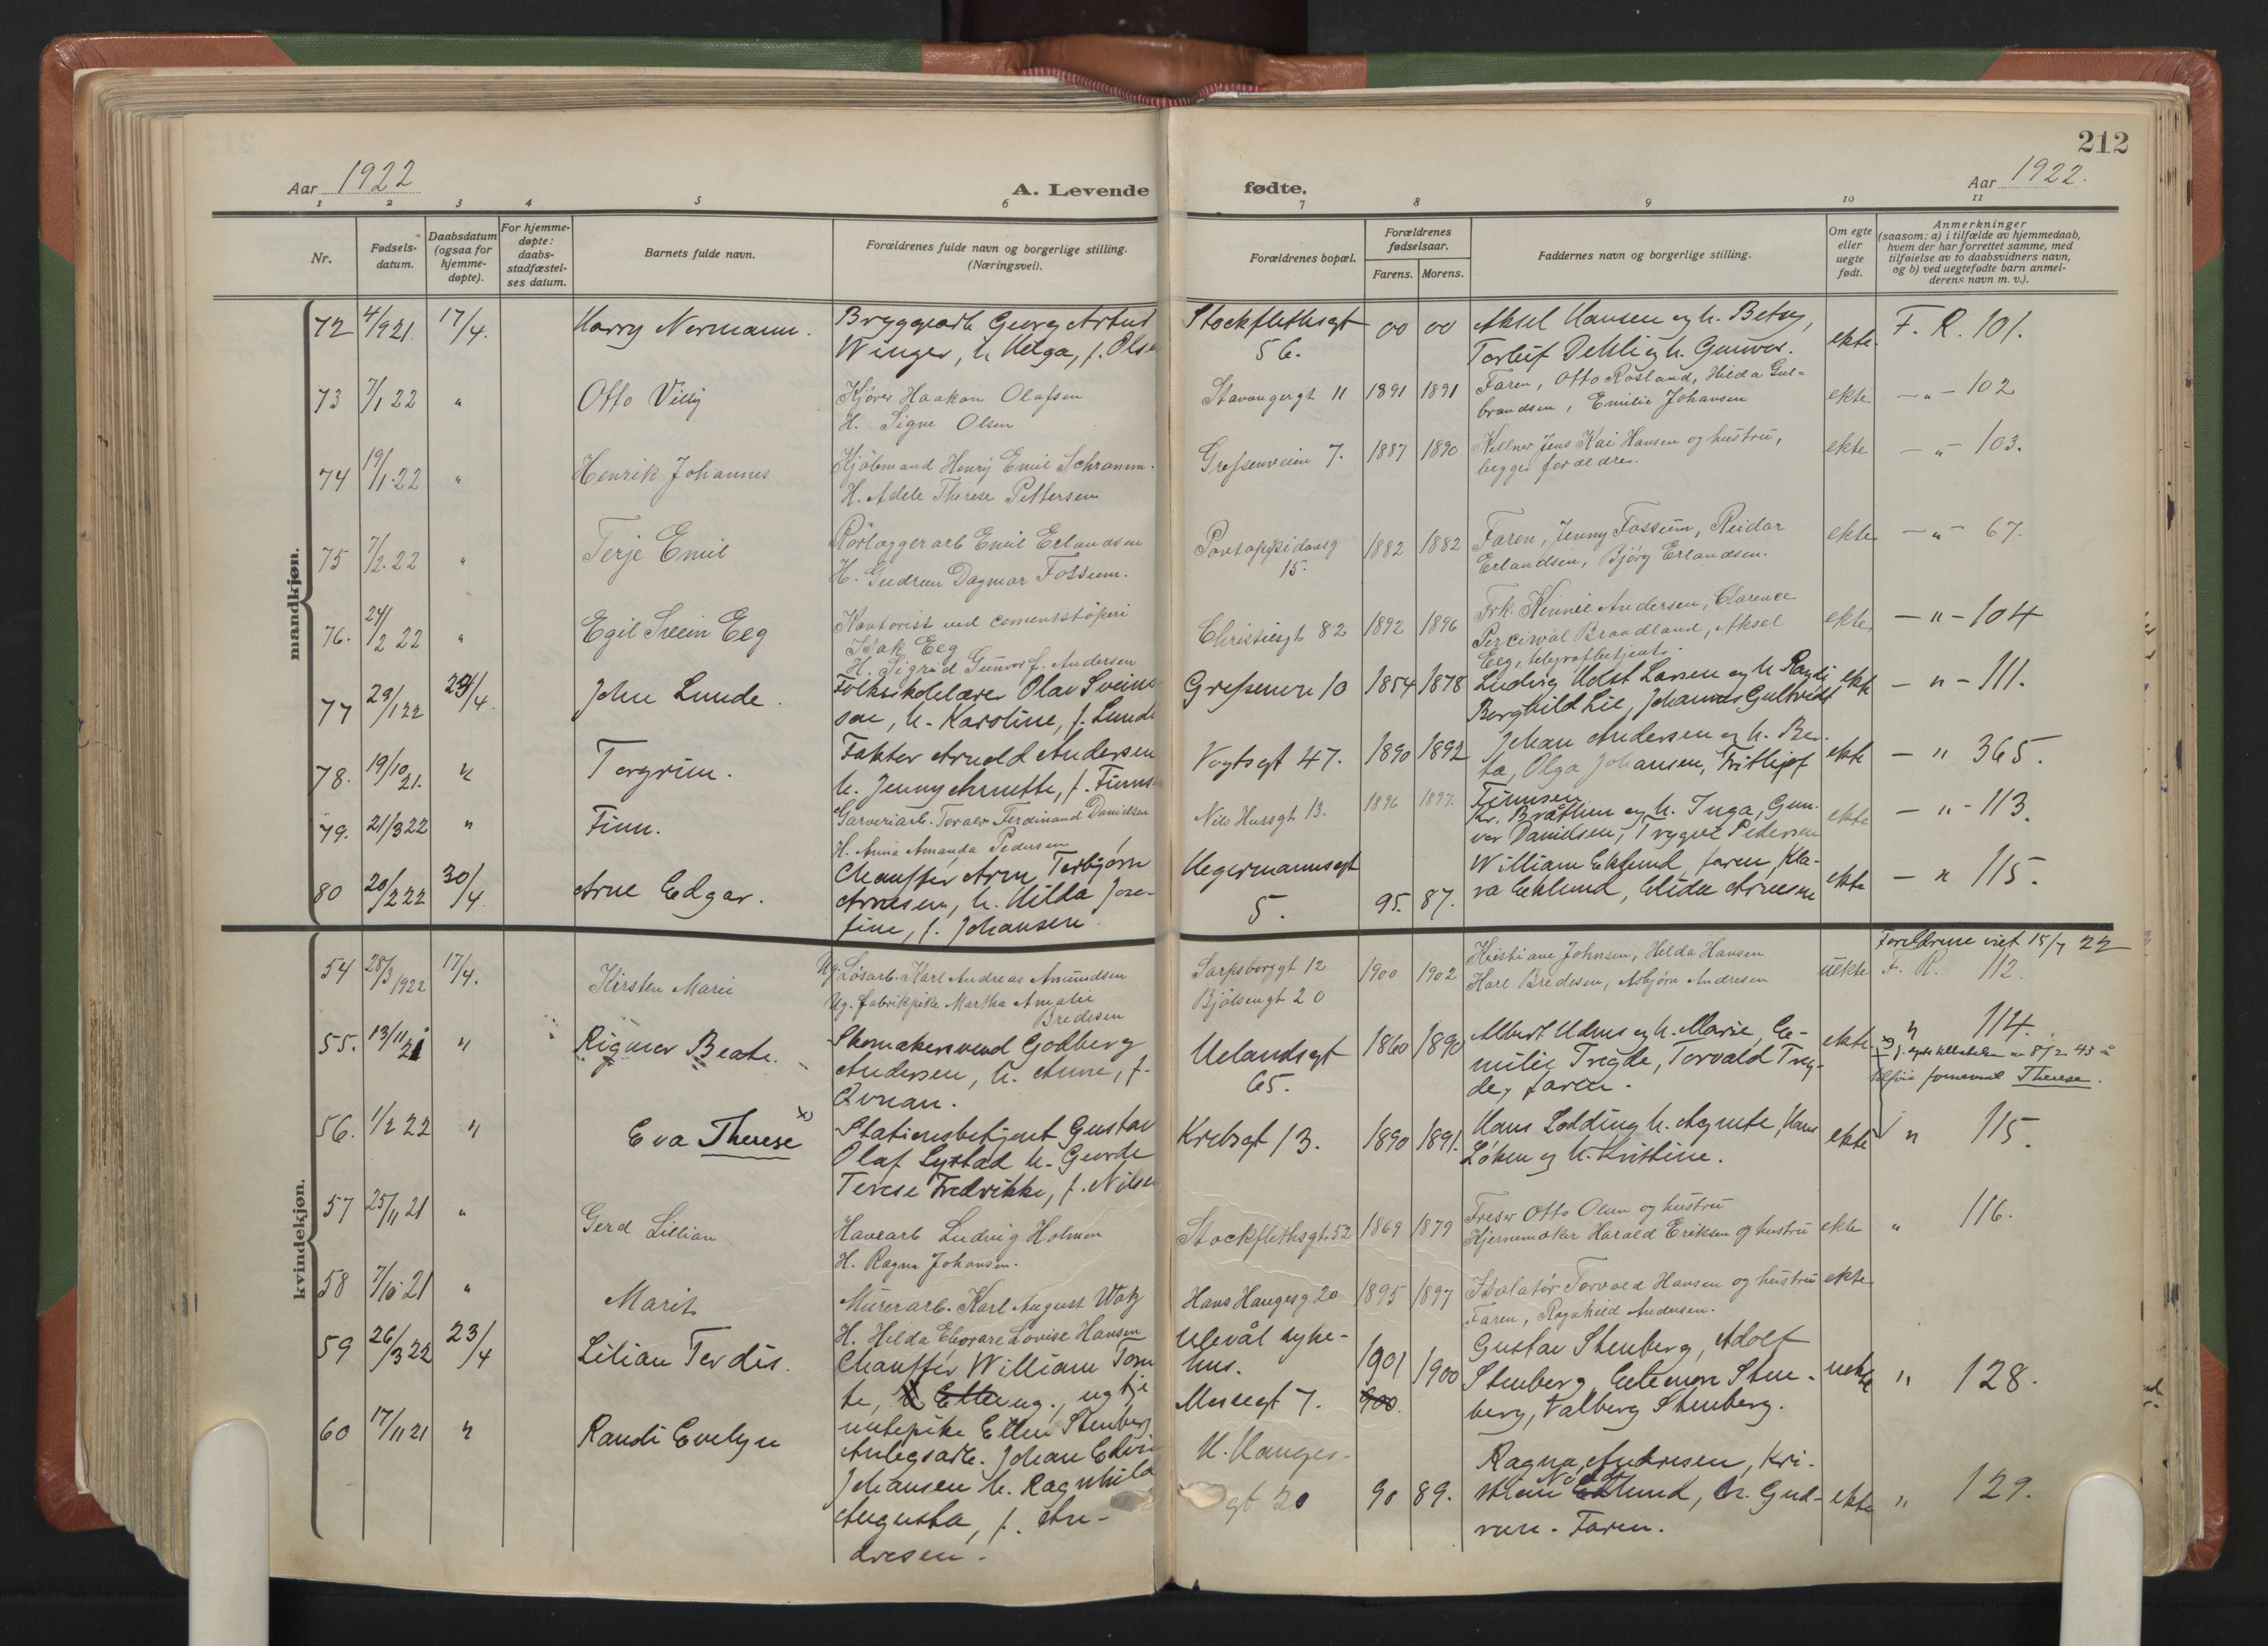 212
Aar 1922
A. Levende fødte.
Aar 1922.
1 2 3 4 5 6 7 8 9 10 11
Nr.
Fødsels-
datum.
Daabsdatum
(ogsaa for
hjemme-
døpte).
For hjemme-
døpte:
daabs-
stadfæstel-
ses datum.
Barnets fulde navn.
Forældrenes fulde navn og borgerlige stilling.
(Næringsvei).
Forældrenes bopæl.
Forældrenes
fødselsaar.
Farens. Morens.
Faddernes navn og borgerlige stilling.
Om egte
eller
uegte
født.
Anmerkninger
(saasom: a) i tilfælde av hjemmedaab,
hvem der har forrettet samme, med
tilføielse av to daabsvidners navn,
og b) ved uegtefødte barn anmel-
derens navn m. v.).
mandkjøn.
72 4/9 21. 17/4. Harry Normann.
Bryggearb. Georg Artur
Winger, h. Helga, f. Olsen
Stockflethsgt
56.
00 00
Aksel Hansen og h. Betsy,
Torleif Dehli og h. Gunvor.
ekte. F. R. 101.
73 7/1 22 " Otto Villy
Kjører Haakon Olafsen
H. Signe Olsen
Stavangergt 11 1891 1891
Faren, Otto Røsland, Hilda Gul-
brandsen, Emilie Johansen
ekte — " — 102
74 19/1.22 " Henrik Johannes
Kjøbmand Henry Emil Schramm.
H. Adele Therese Pettersen
Grefsenveien 7. 1887 1890
Kellner Jens Kai Hansen og hustru,
begges foreldre.
ekte — " — 103.
75 7/2.22 " Terje Emil
Rørlæggerarb Emil Erlandsen
H. Gudrun Dagmar Fossum.
Pontoppidansg
15.
1882 1882
Faren, Jenny Fossum, Reidar
Erlandsen, Bjørg Erlandsen.
ekte — " — 67.
76. 24/2 22 " Egil Svein Eeg
Kontorist ved cementstøperi
Isak Eeg
H. Sigrid Gunvor f. Andersen
Christiesgt 82 1892 1896
Frk. Minnie Andersen, Clarence
Percival Brandland, Aksel
Eeg, telegrafbetjent.
ekte — " — 104
77 29/1 22 23/4. John Lunde.
Folkeskolelærer Olav Svein-
son, h. Karoline, f. Lunde
Grefsenvn 10 1854 1878
Ludvig Holst Larsen og h. Randi
Borghild Lie, Johannes Gultvedt
ekte — " — 111.
78. 19/10 21. " Torgrim.
Faktor Arnold Andersen
h. Jenny Annette, f. Finnsen
Vogtsgt 47. 1890 1892
Johan Andersen og h. Ber-
ta, Olga Johansen, Fritljof
Finnsen
ekte — " 365.
79. 21/3 22 " Finn.
Garveriarb. Toralv Ferdinand Davidsen
H. Anna Amanda Pedersen
Nils Hussgt 13. 1896 1897.
Kr. Bråthen og h. Inga, Gun-
vor Davidsen, Trygve Pedersen
ekte — " — 113.
80 20/2 22 30/4 Arne Edgar.
Chauffør Arne Torbjørn
Arnesen, h. Hilda Jose-
fine, f. Johansen.
Hegermannsgt
5.
95. 87.
William Eklund, faren, Kla-
ra Eklund, Elida Arnesen
ekte — " 115.
kvindekjøn.
54 28/3 1922 17/4. Kirsten Marie
Ug. Løsarb. Karl Andreas Amundsen
Ug. fabrikpike Martha Amalie
Bredesen
Sarpsborggt 12
Bjølsengt 20
1900 1902
Kristiane Johnsen, Hilda Hansen
Harl Bredesen, Asbjørn Andresen
uekte
Foreldrene viet 15/7 22
F. R. 112.
55. 13/11 21 " Rigmor Beate.
Skomakersvend Godberg
Andersen, h. Anne, f.
Qvnan.
Uelandsgt
65.
1860 1890
Albert Udnes og h. Marie, E-
milie Trygde, Torvald Tryg-
de, faren.
ekte. " 114.
x) tilføie fornavnet Therese.
56. 1/2 22 " Eva Therese x)
Stationsbetjent Gustav
Olaf Systad h. Gerda
Terese Fredrikke, f. Nilsen
Krebsgt 13. 1890 1891.
Hans Lodding h. Agnete, Hans
Løken og h. Kristine.
ekte " 115.
57 25/11 21 " Gerd Lillian
Havearb Ludvig Holmen
H. Ragna Johansen.
Stockflethsgt. 52 1869 1879
Freser Otto Olsen og hustru
Kjernemaker Harald Eriksen og hustru
ekte " 116.
58 7/10 21 " Marit
Murerarb. Karl August Watz
H. Hilda Elvovare Lovise Hansen
Hans Haugesg 20 1895 1897
Isolatør Torvald Hansen og hustru
Faren, Ragnhild Andersen.
ekte
59 26/3 22 23/4 Lilian Tordis.
Chauffør William Torn
te, h. Ellen ug., ug tje
nestepike Ellen Stenberg
Ulevål syke-
hus.
Mosegt 7.
1901 1900
900.
Gustav Stenberg, Adolf
Stenberg, Eleonor Sten-
berg, Valborg Stenberg.
uekte " 128.
60 17/11 21 " Randi Evelyn
Anlegsarb. Johan Edvin
Johansen h. Ragnhild
Augusta, f. An-
dresen.
H. Hauges-
gt 20
90 89.
Ragna Andresen, Kri-
stian Nordlund, h. Gud-
run. Faren.
ekte " 129.